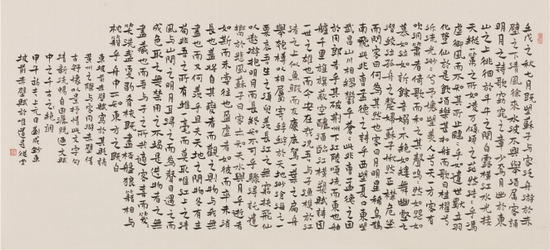 壬戌之秋七月既望蘇子與客泛舟遊於赤
壁之下清風徐來水波不興舉酒屬客誦
明月之詩歌窈窕之章少焉月出於東
山之上徘徊於斗牛之間白露橫江水光接
天縱一葦之所如凌萬頃之茫然浩浩乎如馮
虛御風而不知其所止飄飄乎如遺世獨立羽
化而登仙於是飲酒樂甚扣舷而歌之歌曰桂棹兮
蘭槳擊空明兮
泝流光渺渺兮予懷望美人兮天一方客有
吹洞簫者倚歌而和之其聲嗚嗚然如怨如
慕如泣如訴餘音嫋嫋不絕如縷舞幽壑之
潛蛟泣孤舟之嫠婦蘇子愀然正襟危坐
而問客曰何為其然也客曰月明星稀烏鵲
南飛此非曹孟德之詩乎西望夏口東望
武昌山川相繆鬱乎蒼蒼此非孟德之困
於周郎者乎方其破荊州下江陵順流而東也舳
艫千里旌旗蔽空釃酒臨江橫槊賦詩固
一世之雄也而今安在哉況吾與子漁樵於江
渚之上侶魚蝦而友麋鹿駕一葉之扁舟
舉匏樽以相屬寄蜉蝣於天地渺滄海之一
粟哀吾生之須臾羨長江之無窮挾飛仙
以遨遊抱明月而長終知不可乎驟得託遺
響於悲風蘇子曰客亦知夫水與月乎逝者
如斯而未嘗往也盈虛者如彼而卒莫消
長也蓋將自其變者而觀之則天地曾不能以一瞬
自其不變者而觀之則物與我皆無
盡也而又何羨乎且夫天地之間物各有主
苟非吾之所有雖一毫而莫取惟江上之清
風與山間之明月耳得之而為聲目遇之而
成色取之無禁用之不竭是造物者之無
盡藏也而吾與子之所共適客喜而笑
洗盞更酌肴核既盡杯盤狼籍相與
枕藉乎舟中不知東方之既白